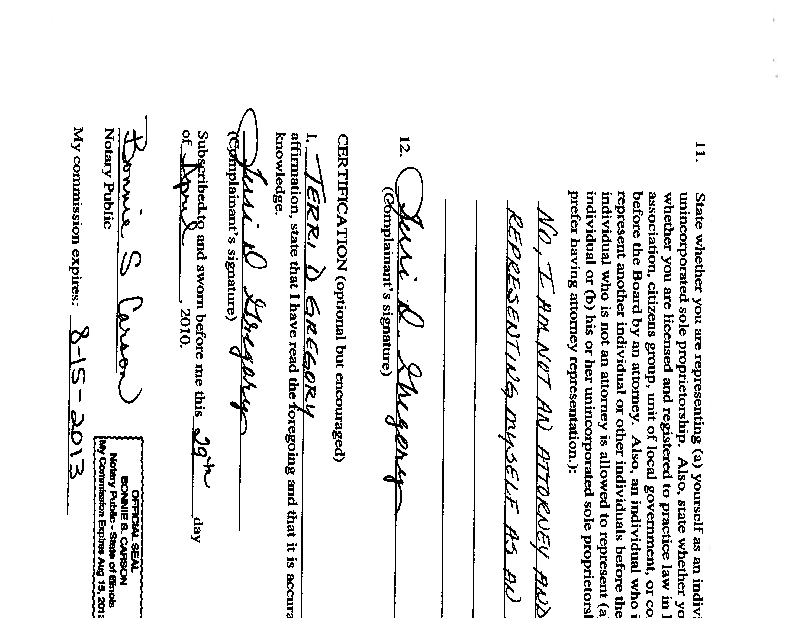 11. State whether you are representing (a) yourself as an indivi
unincorporated sole proprietorship. Also, state whether yo
whether you are licensed and registered to practice law in I
association, citizens group, unit of local government, or co
before the Board by an attorney. Also, an individual who i
represent another individual or other individuals before the
individual who is not an attorney is allowed to represent (a
individual or (b) his or her unincorporated sole proprietorsh
prefer having attorney representation.):
NO, I AM NOT AN ATTORNEY AND
REPRESENTING MYSELF AS AN
12. Terri D. Gregory
(Complainant's signature)
CERTIFICATION (optional but encouraged)
I, TERRI D GREGORY
affirmation, state that I have read the foregoing and that it is accura
knowledge.
Terri D Gregory
(Complainant's signature)
Subscribed to and sworn before me this 29th day
of April, 2010.
Bonnie S Carson
Notary Public
My commission expires: 8-15-2013
OFFICIAL SEAL
BONNIE S. CARSON
Notary Public - State of Illinois
My Commission Expires Aug 15, 2013